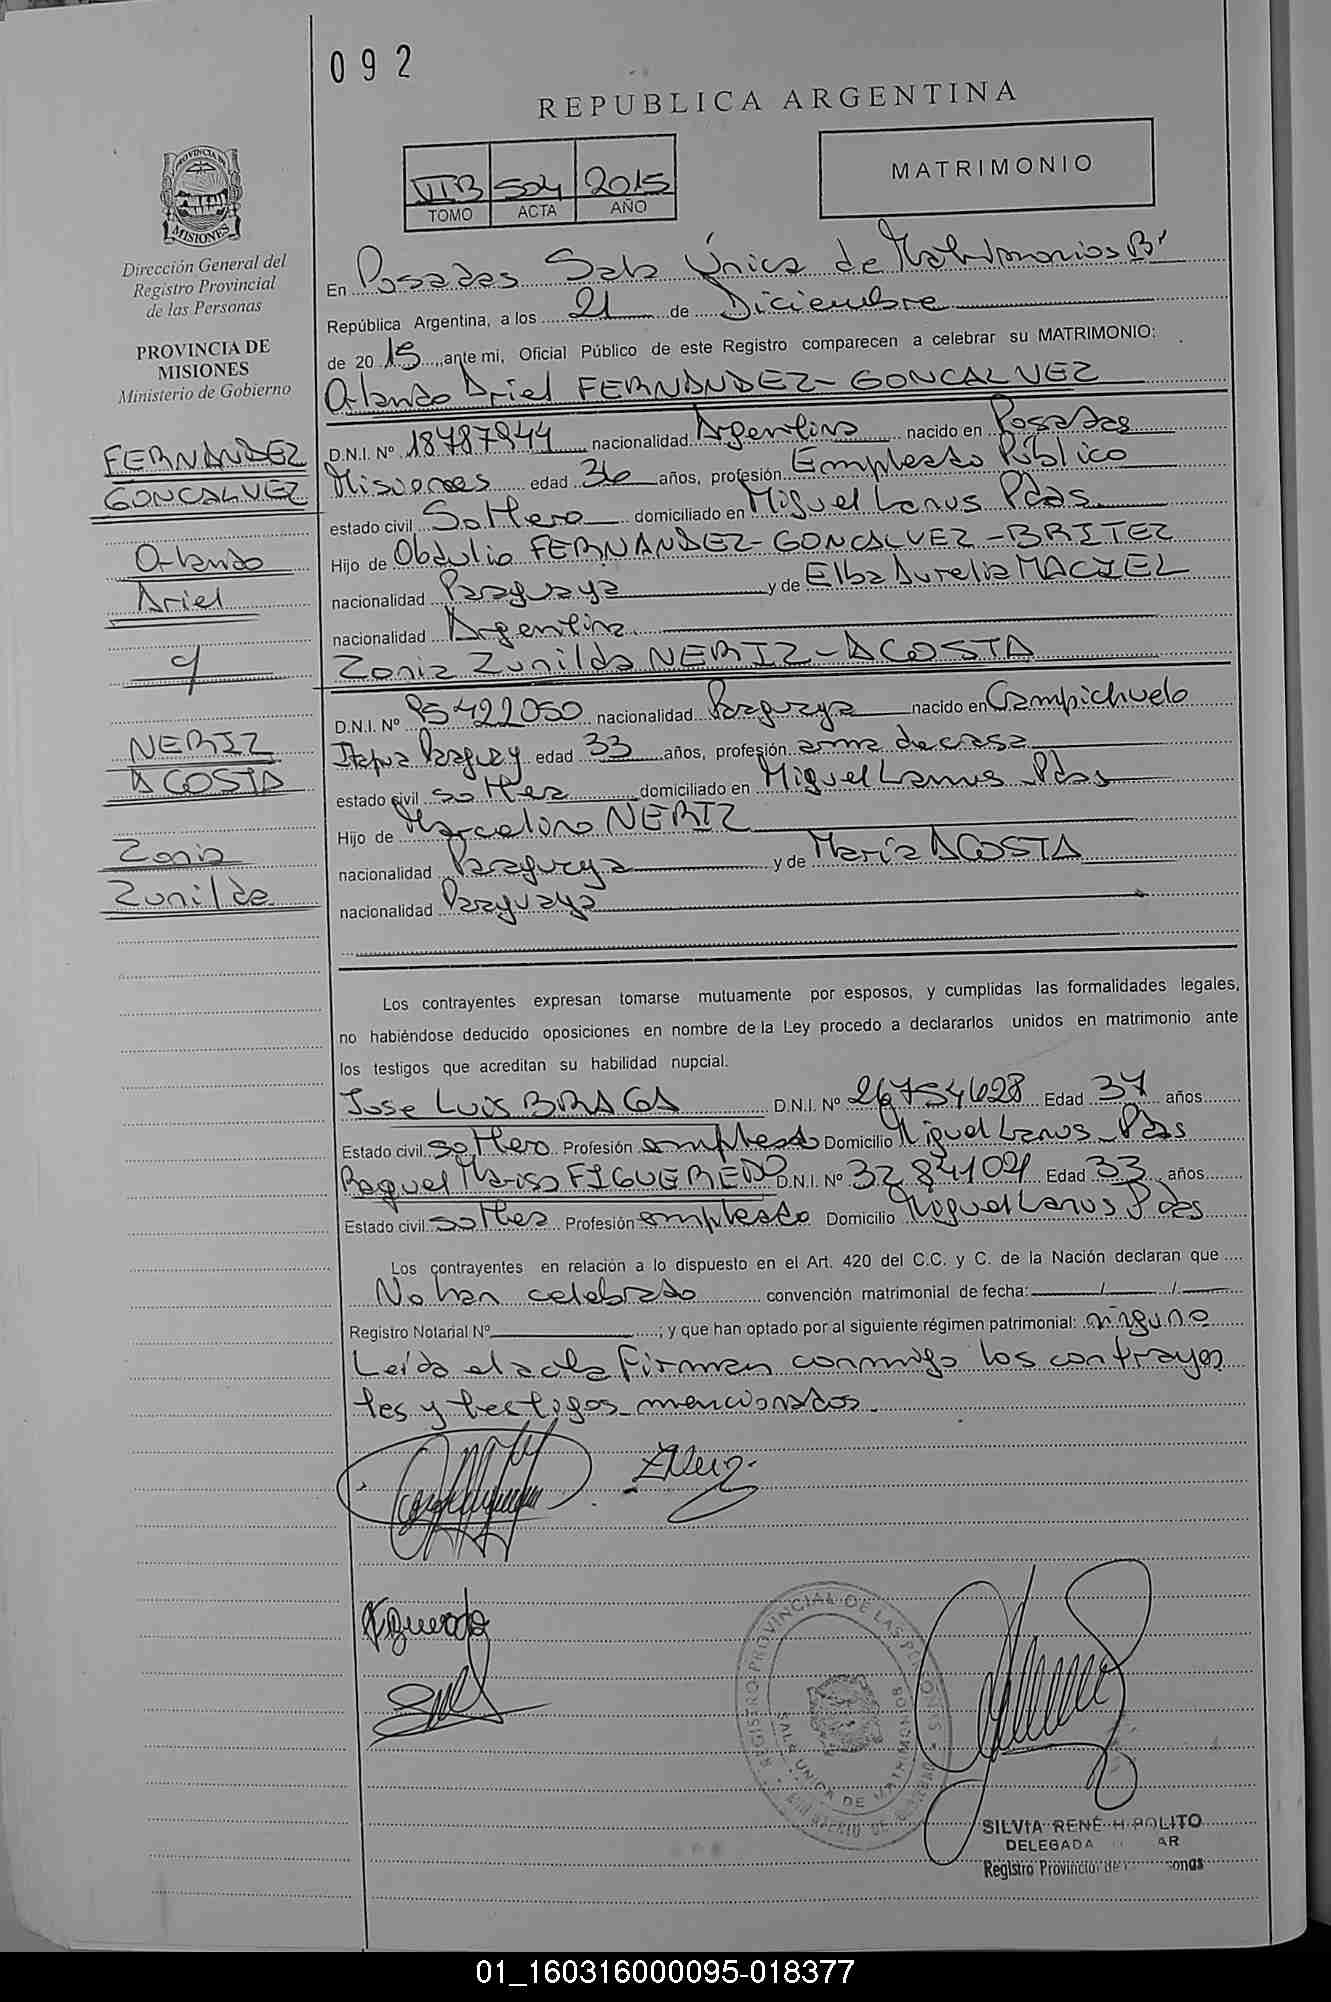 092
REPUBLICA ARGENTINA
VII B 504 2015
TOMO ACTA AÑO
MATRIMONIO
PROVINCIA DE MISIONES
Dirección General del
Registro Provincial
de las Personas
PROVINCIA DE
MISIONES
Ministerio de Gobierno
FERNANDEZ
GONCALVEZ
Orlando
Ariel
y
NERIZ
ACOSTA
Zonia
Zunilda
En Posadas Sala Única de Matrimonios B'
República Argentina, a los 21 de Diciembre
de 2015, ante mi, Oficial Público de este Registro comparecen a celebrar su MATRIMONIO:
Orlando Ariel FERNANDEZ-GONCALVEZ
D.N.I. Nº 18787944 nacionalidad Argentina nacido en Posadas
Misiones edad 36 años, profesión Empleado Público
estado civil Soltero domiciliado en Miguel Lanus Pdas
Hijo de Obdulio FERNANDEZ-GONCALVEZ-BRITEZ
nacionalidad Paraguaya y de Elba Aurelia MACIEL
nacionalidad Argentina
Zonia Zunilda NERIZ-ACOSTA
D.N.I. Nº 95422050 nacionalidad Paraguaya nacido en Campichuelo
Itapua Paraguay edad 33 años, profesión ama de casa
estado civil soltera domiciliado en Miguel Lanus Pdas
Hijo de Marcelino NERIZ
nacionalidad Paraguaya y de María ACOSTA
nacionalidad Paraguaya
Los contrayentes expresan tomarse mutuamente por esposos, y cumplidas las formalidades legales,
no habiéndose deducido oposiciones en nombre de la Ley procedo a declararlos unidos en matrimonio ante
los testigos que acreditan su habilidad nupcial.
Jose Luis BRAGA D.N.I. Nº 26754628 Edad 37 años
Estado civil soltero Profesión empleado Domicilio Miguel Lanus Pdas
Raquel Marisa FIGUEREDO D.N.I. Nº 3284104 Edad 33 años
Estado civil soltera Profesión empleado Domicilio Miguel Lanus Pdas
Los contrayentes en relación a lo dispuesto en el Art. 420 del C.C. y C. de la Nación declaran que
No han celebrado convención matrimonial de fecha: / /
Registro Notarial Nº ; y que han optado por al siguiente régimen patrimonial: ninguno
Leída el acta firman conmigo los contrayen
tes y testigos mencionados.
REGISTRO PROVINCIAL DE LAS PERSONAS
SALA UNICA DE MATRIMONIOS
SILVIA RENÉ HIPOLITO
DELEGADA
Registro Provincial de
01_160316000095-018377